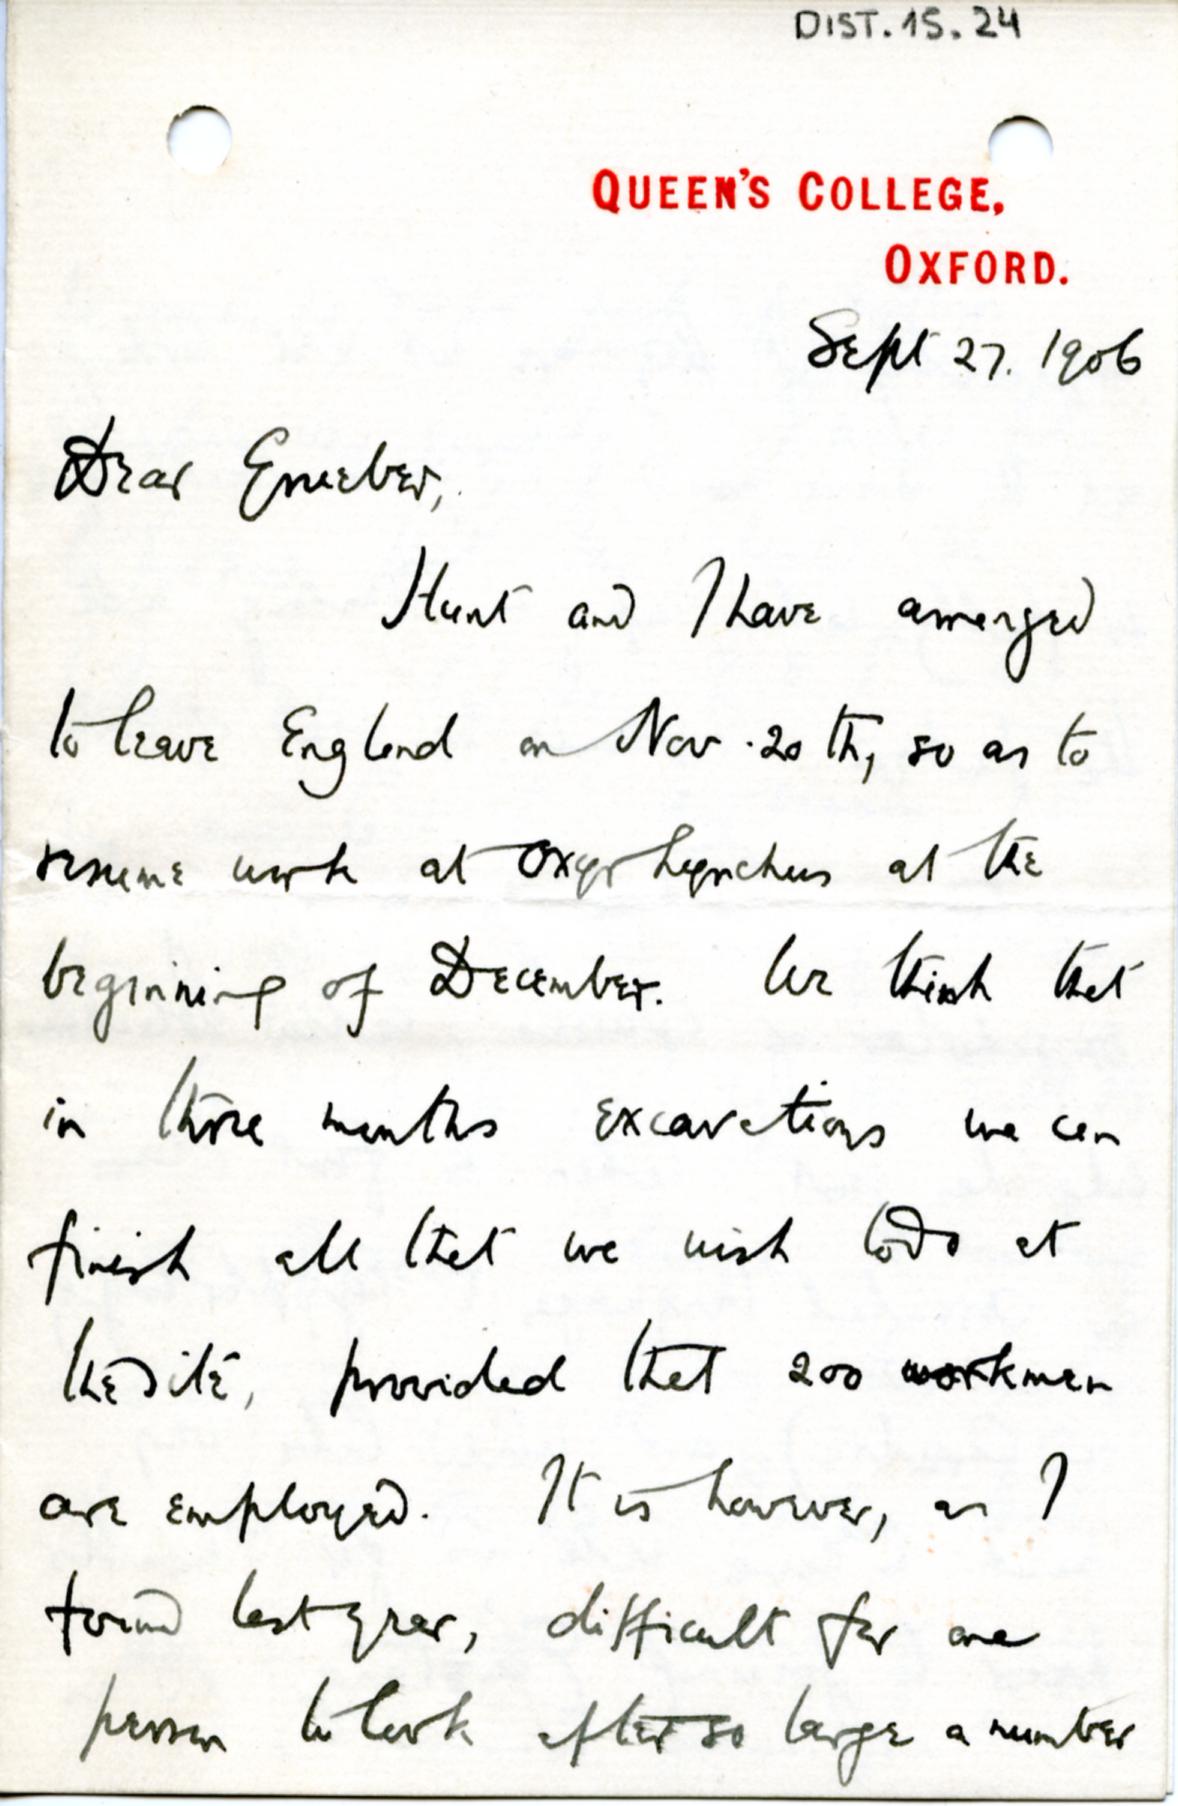 DIST.15.24
QUEEN'S COLLEGE,
OXFORD.
Sept 27. 1906
Dear Grueber,
Hunt and I have arranged
to leave England on Nov. 20th, so as to
resume work at Oxyrhynchus at the
beginning of December. We think that
in three months excavations we can
finish all that we wish to do at
the site, provided that 200 workmen
are employed. It is however, as I
found last year, difficult for one
person to look after so large a number